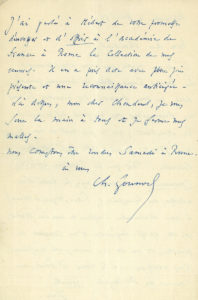 J'ai parlé à Hébert de votre promesse
d'envoyer et d'offrir à l'académie de
France à Rome la collection de mes
œuvres. Il en a pris acte avec joie
présente et une reconnaissance anticipée.
Là dessus, mon cher Choudens, je vous
serre la main à tous et je ferme mes
malles.
nous comptons être rendus Samedi à Rome.
à vous
Ch. Gounod